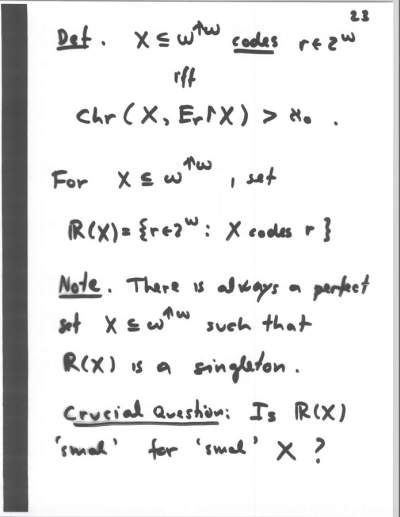 23
Def. X ⊆ ω^↑ω codes r ∈ 2^ω
iff
Chr (X, E_r ↾ X) > ℵ₀ .
For X ⊆ ω^↑ω , set
ℝ(X) = {r ∈ 2^ω : X codes r }
Note. There is always a perfect
set X ⊆ ω^↑ω such that
ℝ(X) is a singleton.
Crucial Question: Is ℝ(X)
'smal' for 'smal' X ?